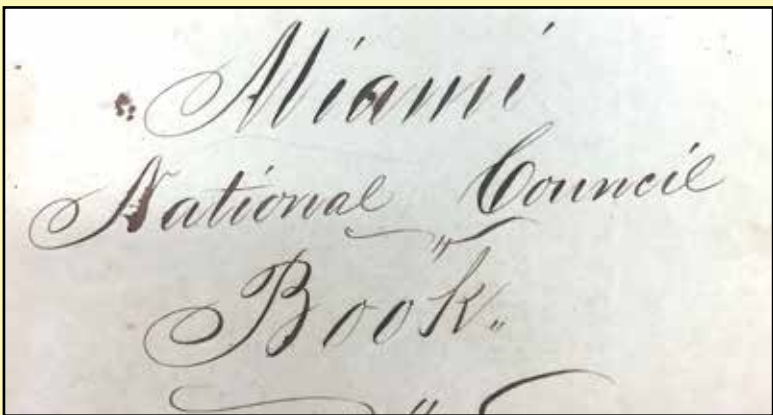 Miami
National Council
Book